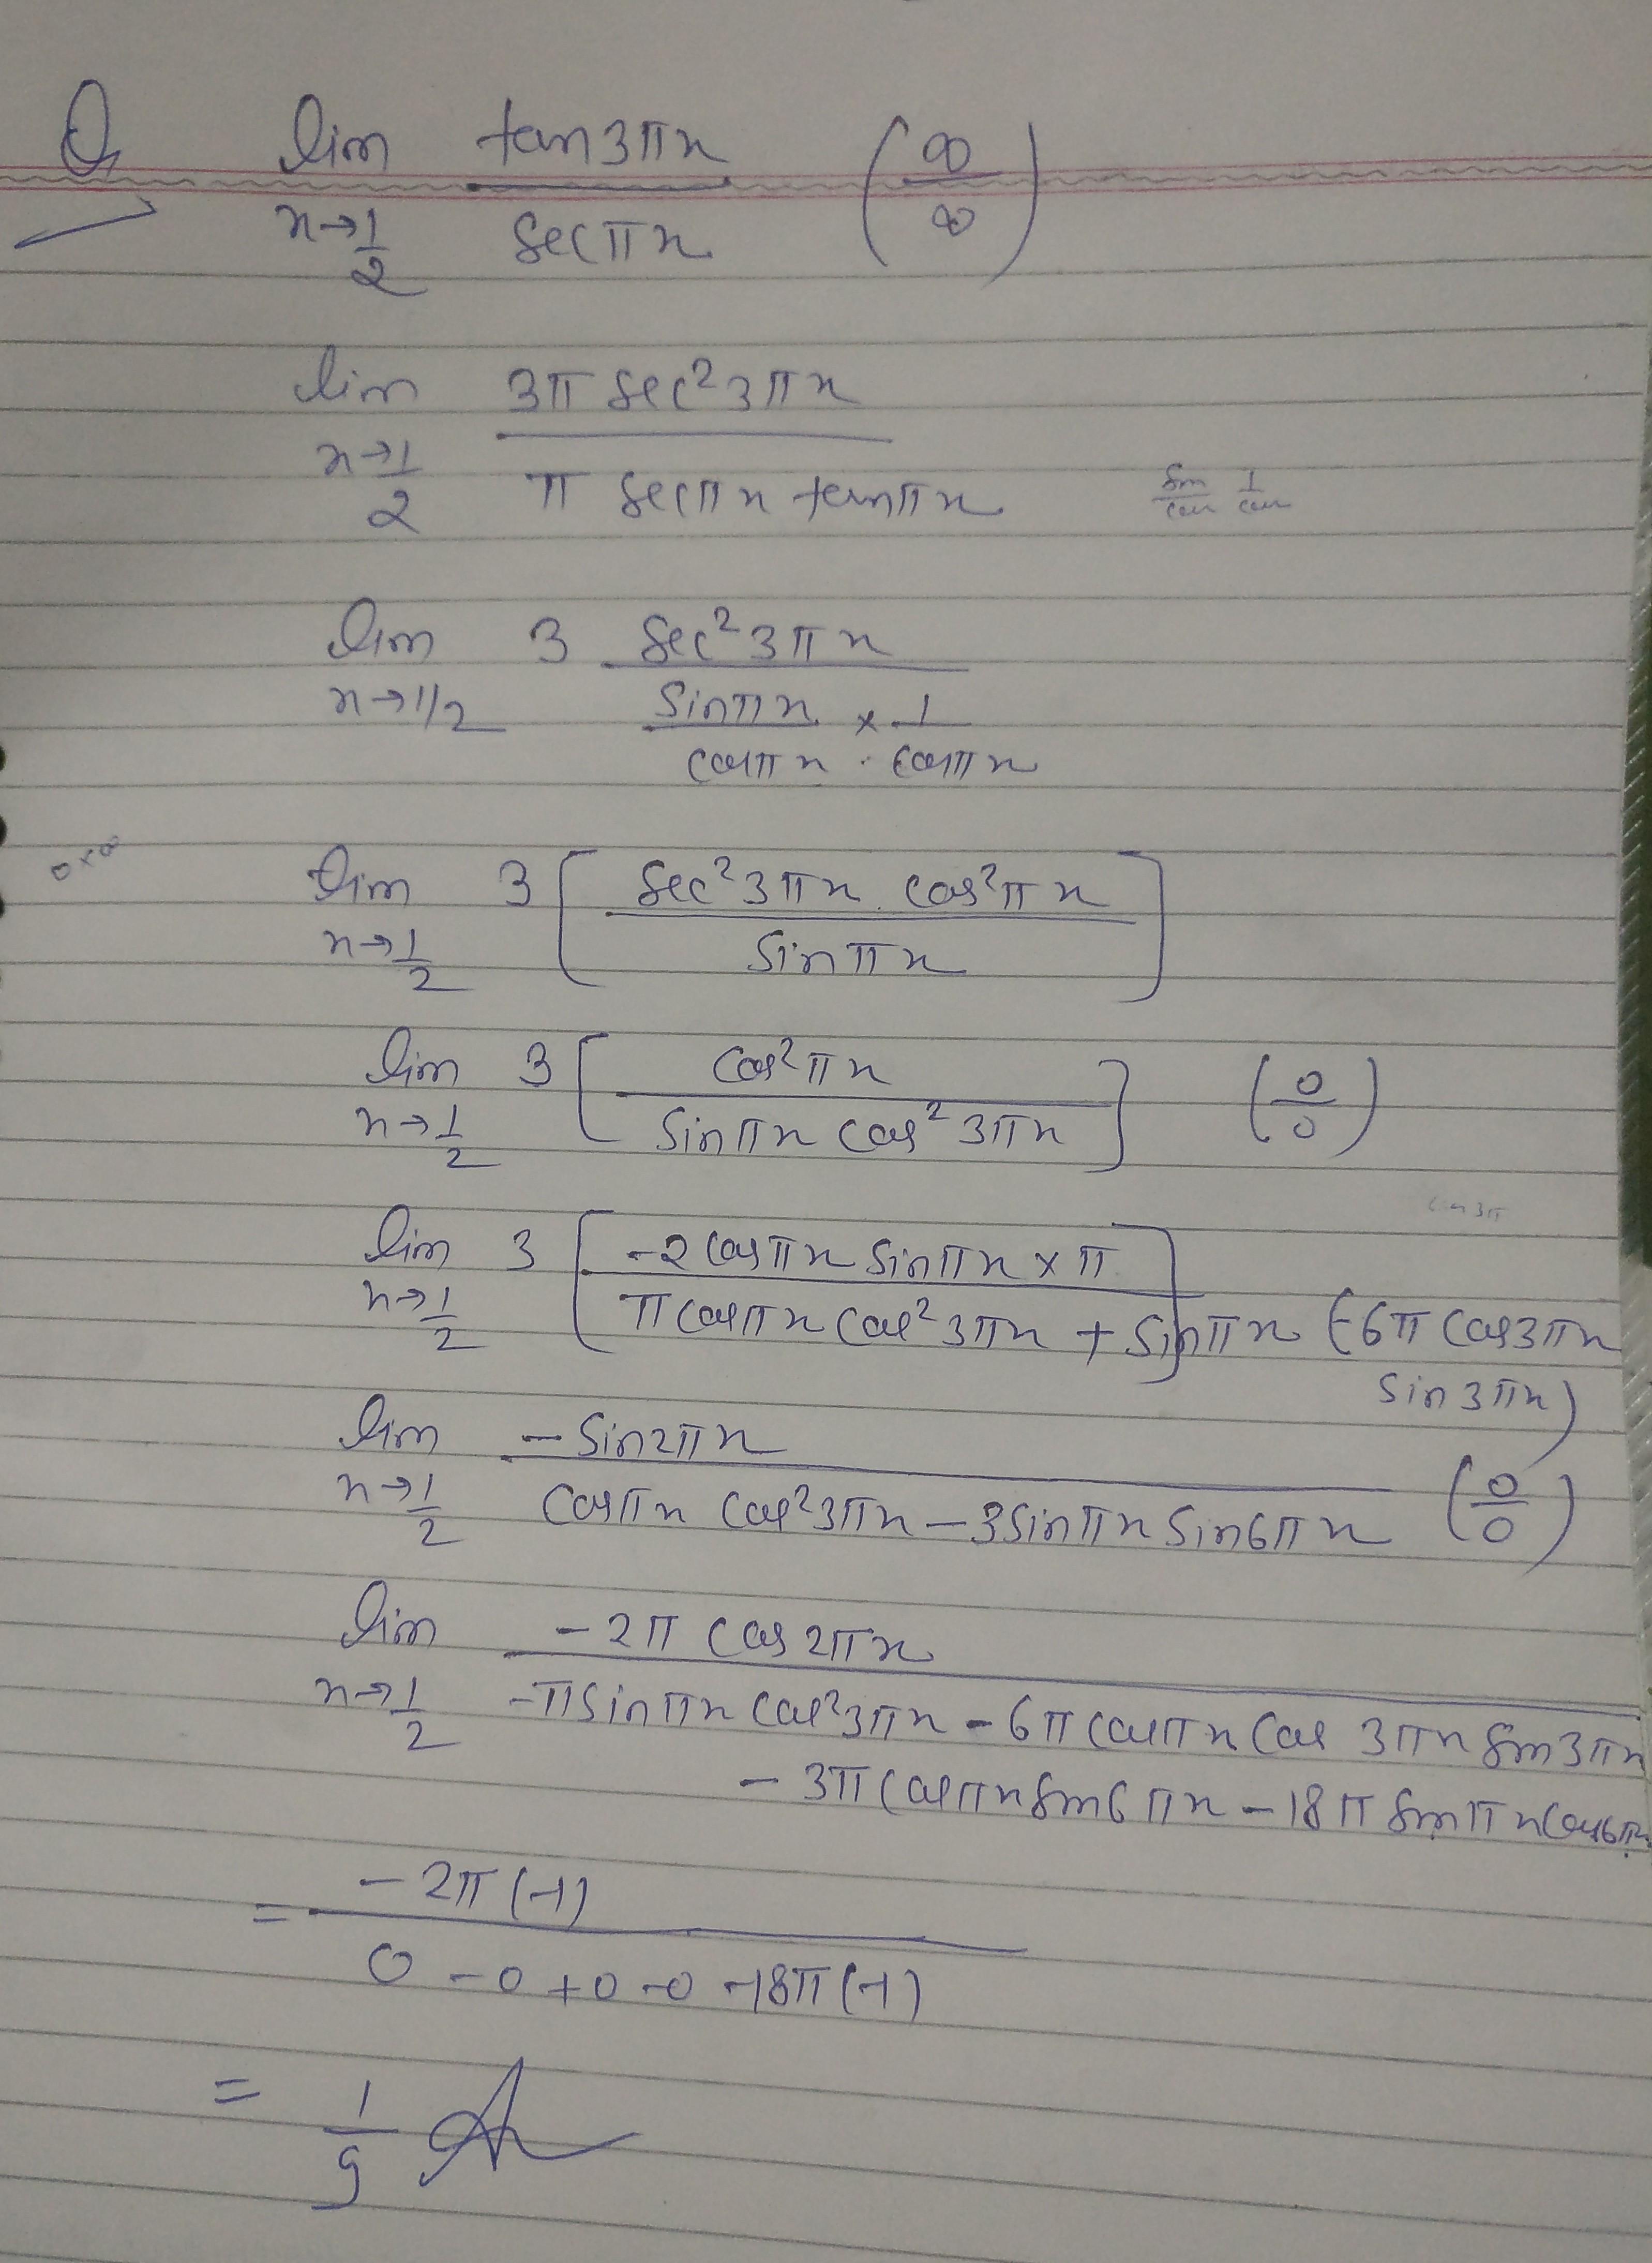 Q lim tan3πx (∞/∞)
x→1/2 secπx
lim 3π sec²3πx
x→1/2 π secπx tanπx sin/cos 1/cos
lim 3 sec²3πx
x→1/2 sinπx/cosπx × 1/cosπx
0×∞ lim 3 [ sec²3πx . cos²πx
x→1/2 sinπx ]
lim 3 [ cos²πx (0/0)
x→1/2 sinπx cos²3πx ]
lim 3 [ -2cosπx sinπx × π ]
x→1/2 πcosπx cos²3πx + sinπx (-6π cos3πx
sin3πx)
lim - sin2πx
x→1/2 cosπx cos²3πx - 3sinπx sin6πx (0/0)
lim -2π cos2πx
x→1/2 -πsinπx cos²3πx - 6πcosπx cos 3πx sin3πx
- 3πcosπx sin6πx - 18π sinπx cos6πx
= -2π(-1)
0 - 0 + 0 - 0 - 18π(-1)
= 1/9 A